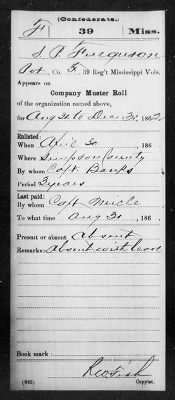 (Confederate.)
F 39 Miss.
S. P. Ferguson
Pvt, Co. F, 39 Reg't Mississippi Vols.
Appears on
Company Muster Roll
of the organization named above,
for Aug 31 to Dec 31, 1862.
Enlisted:
When April 30, 186
Where Simpson County
By whom Capt. Banks
Period 3 years
Last paid:
By whom Capt
To what time Aug 31, 186
Present or absent Absent
Remarks: Absent with leave
Book mark:
(642) Copyist.